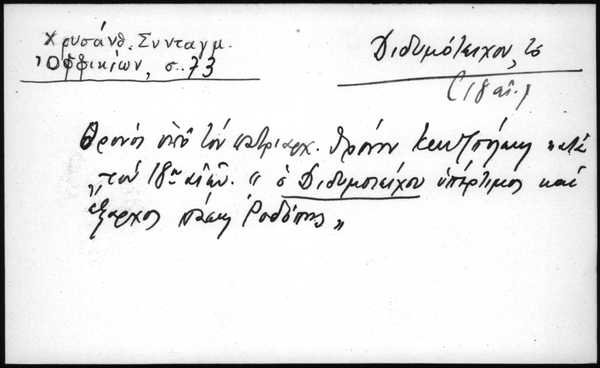 Χρυσάνθ. Συνταγμ.
Ὀφφικίων, σ. 73
Διδυμότειχον, τὸ
(18 αἰ.)
Θρόνος ὑπὸ τὸν πατριαρχ. θρόνον Κων/πόλεως κατὰ
τὸν 18ον αἰῶν. "ὁ Διδυμοτείχου ὑπέρτιμος καὶ
ἔξαρχος πάσης Ῥοδόπης"